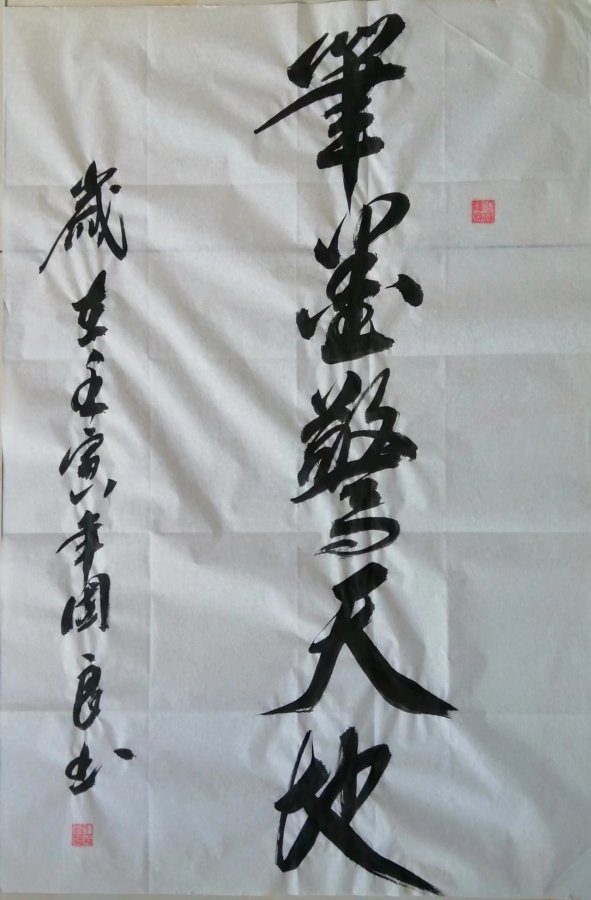 筆墨驚天地
歲在壬寅年國良书